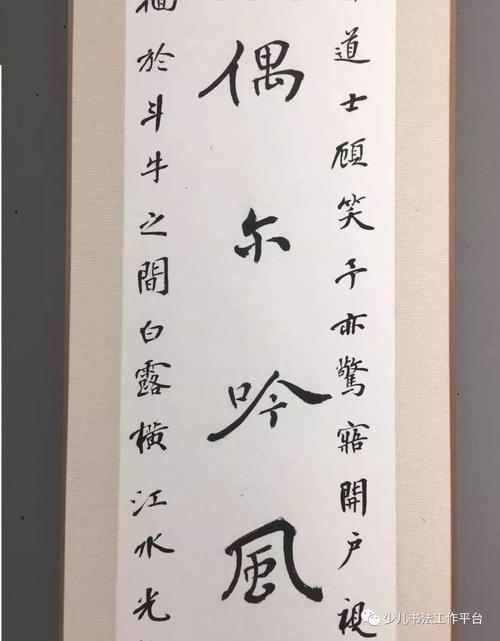 道士顾笑予亦驚寤開户視
偶尓吟風
徊於斗牛之間白露橫江水光
少儿书法工作平台